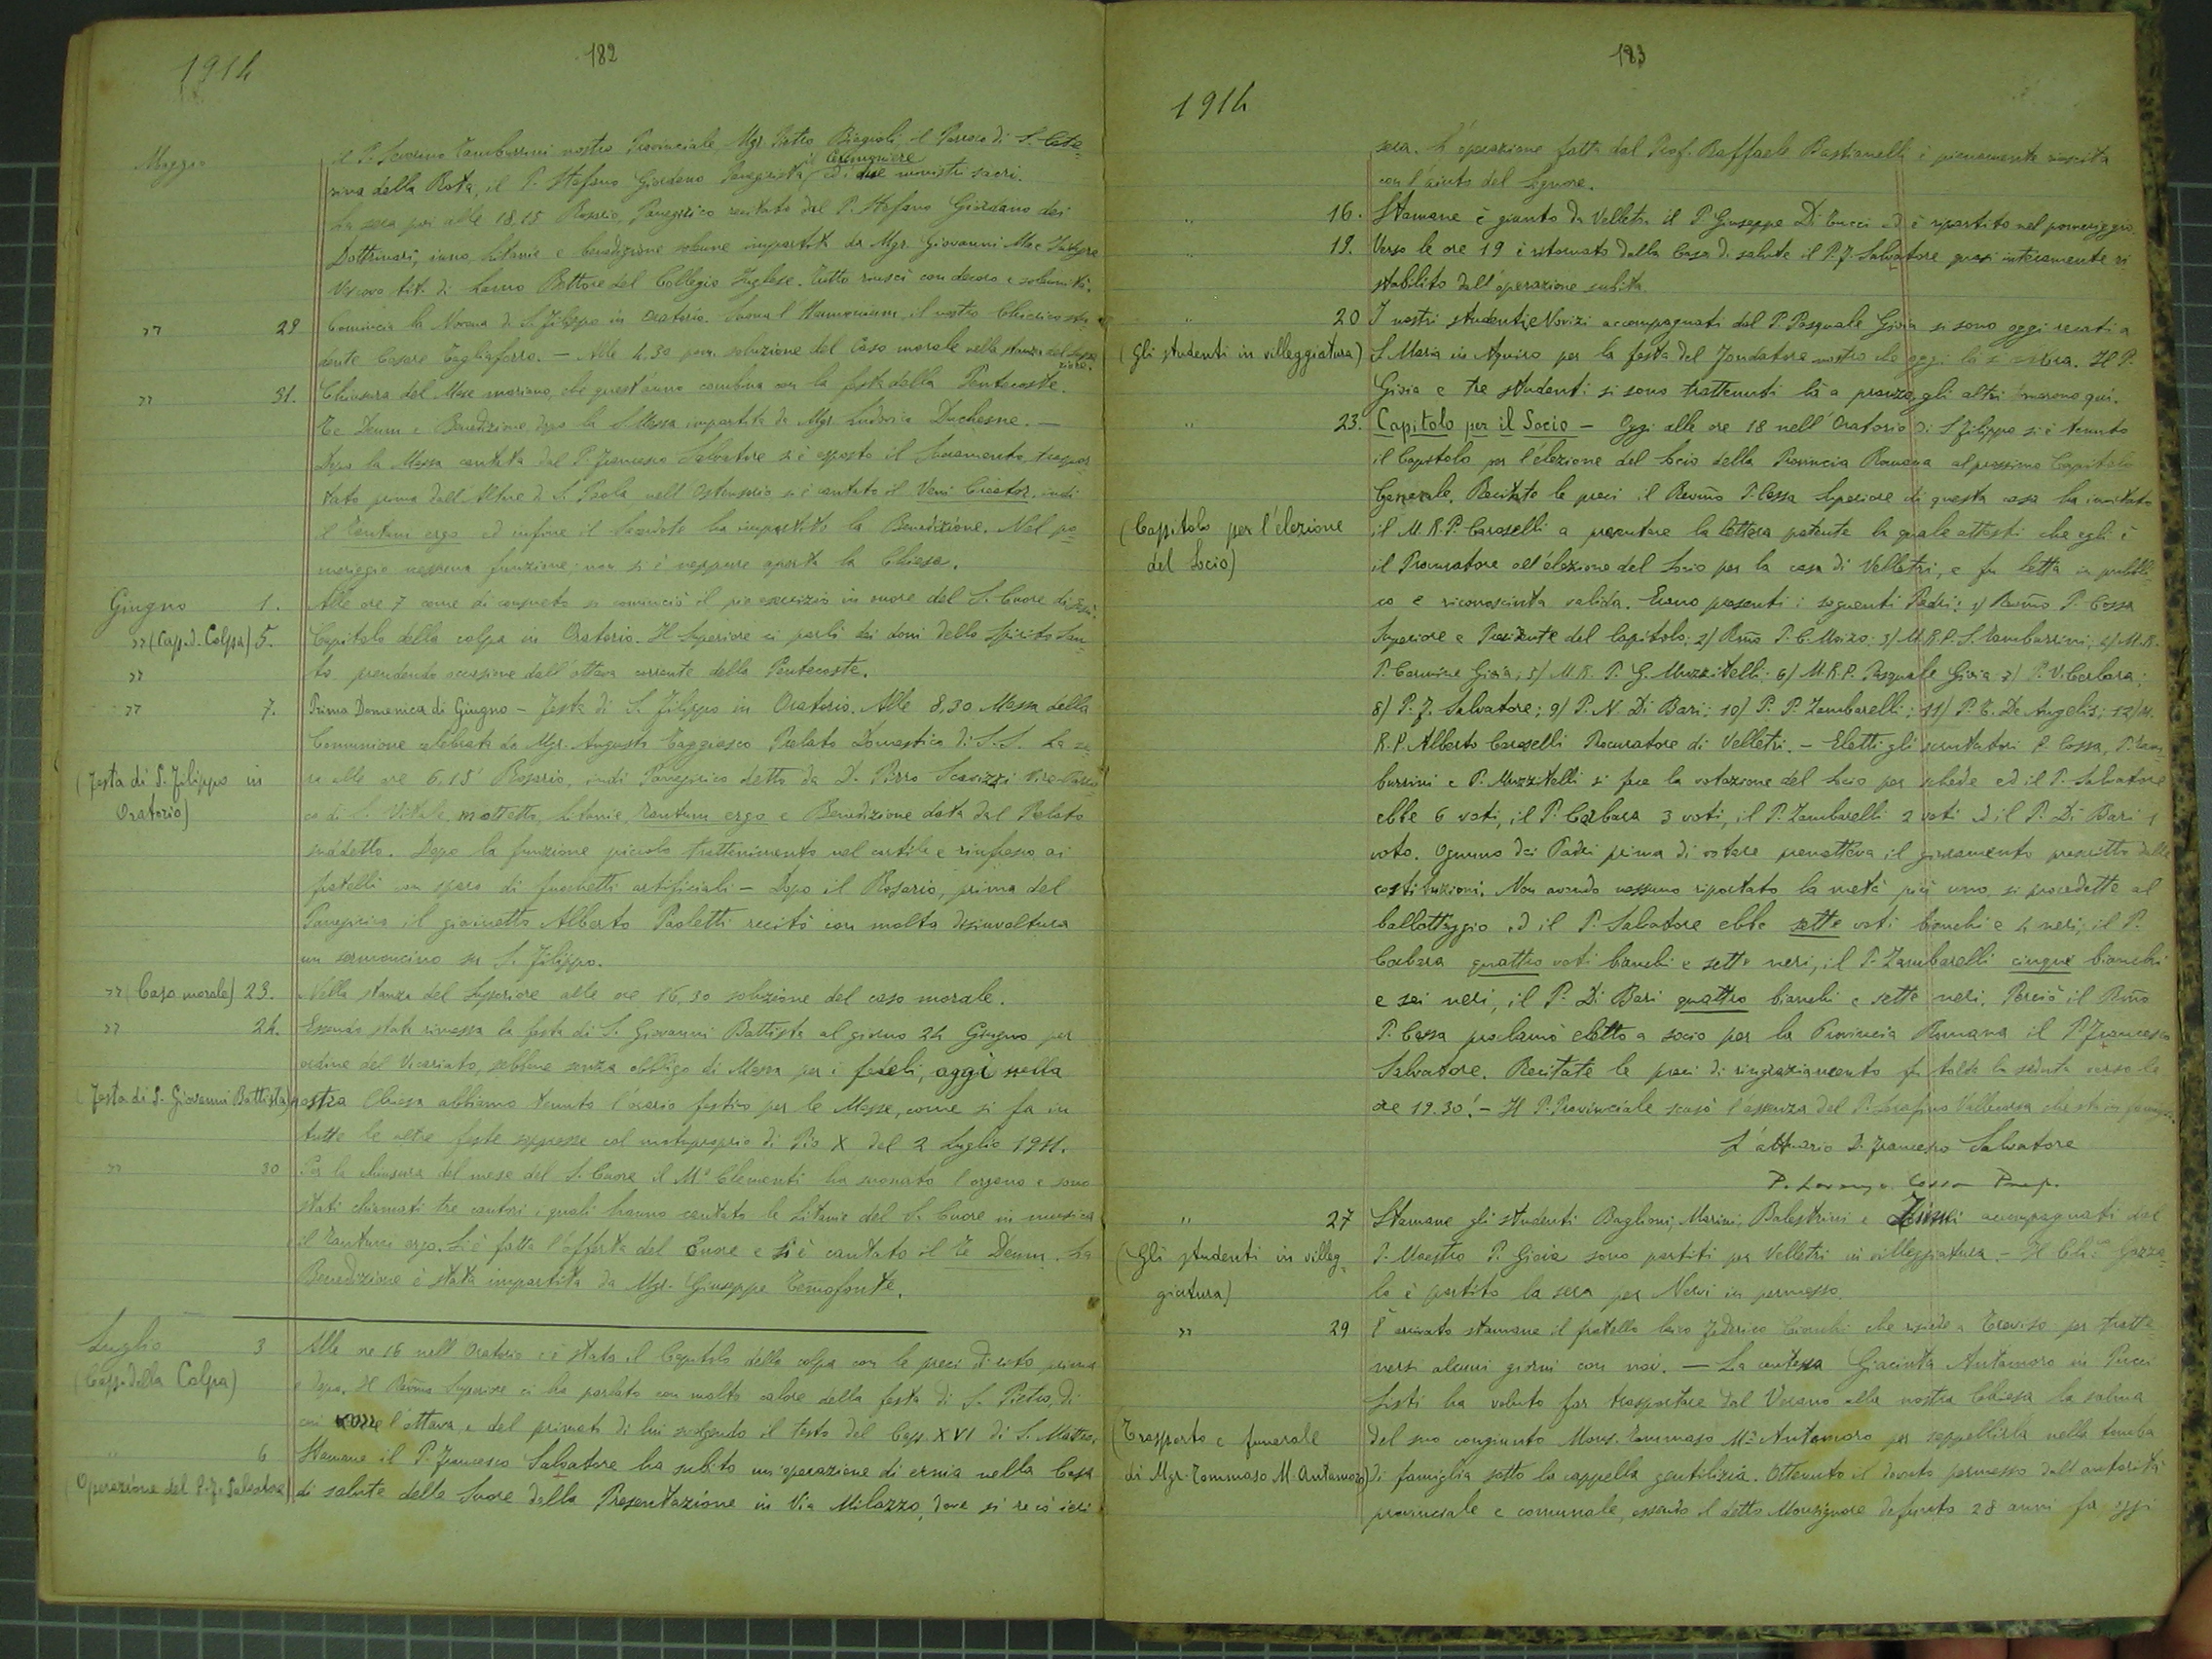 182
1914
Maggio
il P. Severino Tamburrini nostro Provinciale, Mgr Pietro Biagioli, il Parroco di S. Cate=
rina della Rota, il P. Stefano Giordano Panegirista, il Cerimoniere ed i due ministri sacri.
La sera poi alle 18,15 Rosario, Panegirico recitato dal P. Stefano Giordano dei
Dottrinari, inno, litanie e benedizione solenne impartita da Mgr. Giovanni Mac Intyre
Vescovo tit. di Lamo Rettore del Collegio Inglese. Tutto riuscì con decoro e solennità.
" 29 Comincia la Novena di S. Filippo in Oratorio. Suona l'Harmonium il nostro Chierico stu=
dente Cesare Tagliaferro. — Alle 4.30 pom. soluzione del Caso morale nella stanza del Supe
riore.
" 31. Chiusura del Mese mariano, che quest'anno combina con la festa della Pentecoste.
Te Deum e Benedizione dopo la S. Messa impartita da Mgr. Ludovico Duchesne. —
Dopo la Messa cantata dal P. Francesco Salvatore si è esposto il Sacramento traspor
tato prima dall'Altare di S. Paola nell'Ostensorio si è cantato il Veni Creator, indi
il Tantum ergo ed infine il Sacerdote ha impartito la Benedizione. Nel po=
meriggio nessuna funzione; non si è neppure aperta la Chiesa.
Giugno 1. Alle ore 7 come di consueto si cominciò il pio esercizio in onore del S. Cuore di Gesù.
" (Cap. d. Colpa) 5. Capitolo della colpa in Oratorio. Il Superiore ci parlò dei doni dello Spirito San=
" to prendendo occasione dell'ottava corrente della Pentecoste.
" 7. Prima Domenica di Giugno - festa di S. Filippo in Oratorio. Alle 8,30 Messa della
Comunione celebrata da Mgr. Augusto Taggiasco Prelato Domestico di S. S. La se=
(Festa di S. Filippo in ra alle ore 6,15' Rosario, indi Panegirico detto da D. Pirro Scavizzi Vice-Parro
Oratorio) co di S. Vitale, mottetto, Litanie, Tantum ergo e Benedizione data dal Prelato
suddetto. Dopo la funzione piccolo trattenimento nel cortile e rinfresco ai
fratelli con sparo di fuochetti artificiali - Dopo il Rosario, prima del
Panegirico il giovinetto Alberto Paoletti recitò con molta disinvoltura
un sermoncino su S. Filippo.
" (Caso morale) 23. Nella stanza del Superiore alle ore 16,30 soluzione del caso morale.
" 24. Essendo stata rimessa la festa di S. Giovanni Battista al giorno 24 Giugno per
ordine del Vicariato, sebbene senza obbligo di Messa per i fedeli, oggi nella
(Festa di S. Giovanni Battista) nostra Chiesa abbiamo tenuto l'orario festivo per le Messe, come si fa in
tutte le altre feste soppresse col motuproprio di Pio X del 2 Luglio 1911.
" 30 Per la chiusura del mese del S. Cuore il M° Clementi ha suonato l'organo e sono
stati chiamati tre cantori i quali hanno cantato le Litanie del S. Cuore in musica
il Tantum ergo. Si è fatta l'offerta del Cuore e si è cantato il Te Deum. La
Benedizione è stata impartita da Mgr. Giuseppe
Luglio 3 Alle ore 16 nell'Oratorio c'è stato il Capitolo della colpa con le preci di rito prima
(Cap. della Colpa) e dopo. Il Revmo Superiore ci ha parlato con molto calore della festa di S. Pietro, di
cui corre l'ottava e del primato di lui svolgendo il testo del Cap. XVI di S. Matteo.
" 6 Stamane il P. Francesco Salvatore ha subito un'operazione di ernia nella Casa
(Operazione del P. F. Salvatore) di salute delle Suore della Presentazione in Via Milazzo, dove si recò ieri
183
1914
sera. L'operazione fatta dal Prof. Raffaele Bastianelli è pienamente riuscita
con l'aiuto del Signore.
" 16. Stamane è giunto da Velletri il P. Giuseppe Di Tucci ed è ripartito nel pomeriggio.
" 19. Verso le ore 19 è ritornato dalla Casa di salute il P. F. Salvatore quasi interamente ri
stabilito dall'operazione subita.
" 20 I nostri studenti e Novizi accompagnati dal P. Pasquale Gioia si sono oggi recati a
(Gli studenti in villeggiatura) S. Maria in Aquiro per la festa del Fondatore nostro che oggi là si celebra. Il P.
Gioia e tre studenti si sono trattenuti là a pranzo, gli altri tornarono qui.
" 23. Capitolo per il Socio - Oggi alle ore 18 nell'Oratorio di S. Filippo si è tenuto
il Capitolo per l'elezione del Socio della Provincia Romana al prossimo Capitolo
Generale. Recitate le preci il Revmo P. Cossa Superiore di questa casa ha invitato
(Capitolo per l'elezione il M. R. P. Caroselli a presentare la lettera patente la quale attesti che egli è
del Socio) il Procuratore all'elezione del Socio per la casa di Velletri, e fu letta in pubbli
co e riconosciuta valida. Erano presenti i seguenti Padri: 1) Revmo P. Cossa
Superiore e Presidente del Capitolo; 2) Rmo P. C. Moizo; 3) M. R. P. S. Tamburrini; 4) M. R.
P. Carmine Gioia; 5) M. R. P. G. Muzzitelli; 6) M. R. P. Pasquale Gioia 7) P. V. Cerbara;
8) P. F. Salvatore; 9) P. N. Di Bari; 10) P. P. Zambarelli; 11) P. E. De Angelis; 12) M.
R. P. Alberto Caroselli Procuratore di Velletri. - Eletti gli scrutatori P. Cossa, P. Tam
burrini e P. Muzzitelli si fece la votazione del Socio per schede ed il P. Salvatore
ebbe 6 voti, il P. Cerbara 3 voti, il P. Zambarelli 2 voti ed il P. Di Bari 1
voto. Ognuno dei Padri prima di votare premetteva il giuramento prescritto dalle
costituzioni. Non avendo nessuno riportato la metà più uno, si procedette al
ballottaggio ed il P. Salvatore ebbe sette voti bianchi e 4 neri; il P.
Cerbara quattro voti bianchi e sette neri, il P. Zambarelli cinque bianchi
e sei neri, il P. Di Bari quattro bianchi e sette neri. Perciò il Rmo
P. Cossa proclamò eletto a socio per la Provincia Romana il P. Francesco
Salvatore. Recitate le preci di ringraziamento fu tolta la seduta verso le
ore 19.30'. - Il P. Provinciale scusò l'assenza del P. Serafino Vallecorsa che sta in famiglia.
L'attuario P. Francesco Salvatore
P. Lorenzo Cossa Prep.
" 27 Stamane gli studenti Baglioni, Marini, Balestrini e accompagnati dal
(Gli studenti in villeg= P. Maestro P. Gioia sono partiti per Velletri in villeggiatura. - Il Ch.co Gazzo=
giatura) lo è partito la sera per Nervi in permesso.
" 29 È arrivato stamane il fratello laico Federico Cionchi che risiede a Treviso per tratte=
nersi alcuni giorni con noi. — La contessa Giacinta Antamoro in Pucci
Sisti ha voluto far trasportare dal Verano alla nostra Chiesa la salma
(Trasporto e funerale del suo congiunto Mons. Tommaso Mª Antamoro per seppellirla nella tomba
di Mgr. Tommaso M. Antamoro) di famiglia sotto la cappella gentilizia. Ottenuto il dovuto permesso dall'autorità
provinciale e comunale, essendo il detto Monsignore defunto 28 anni fa, oggi